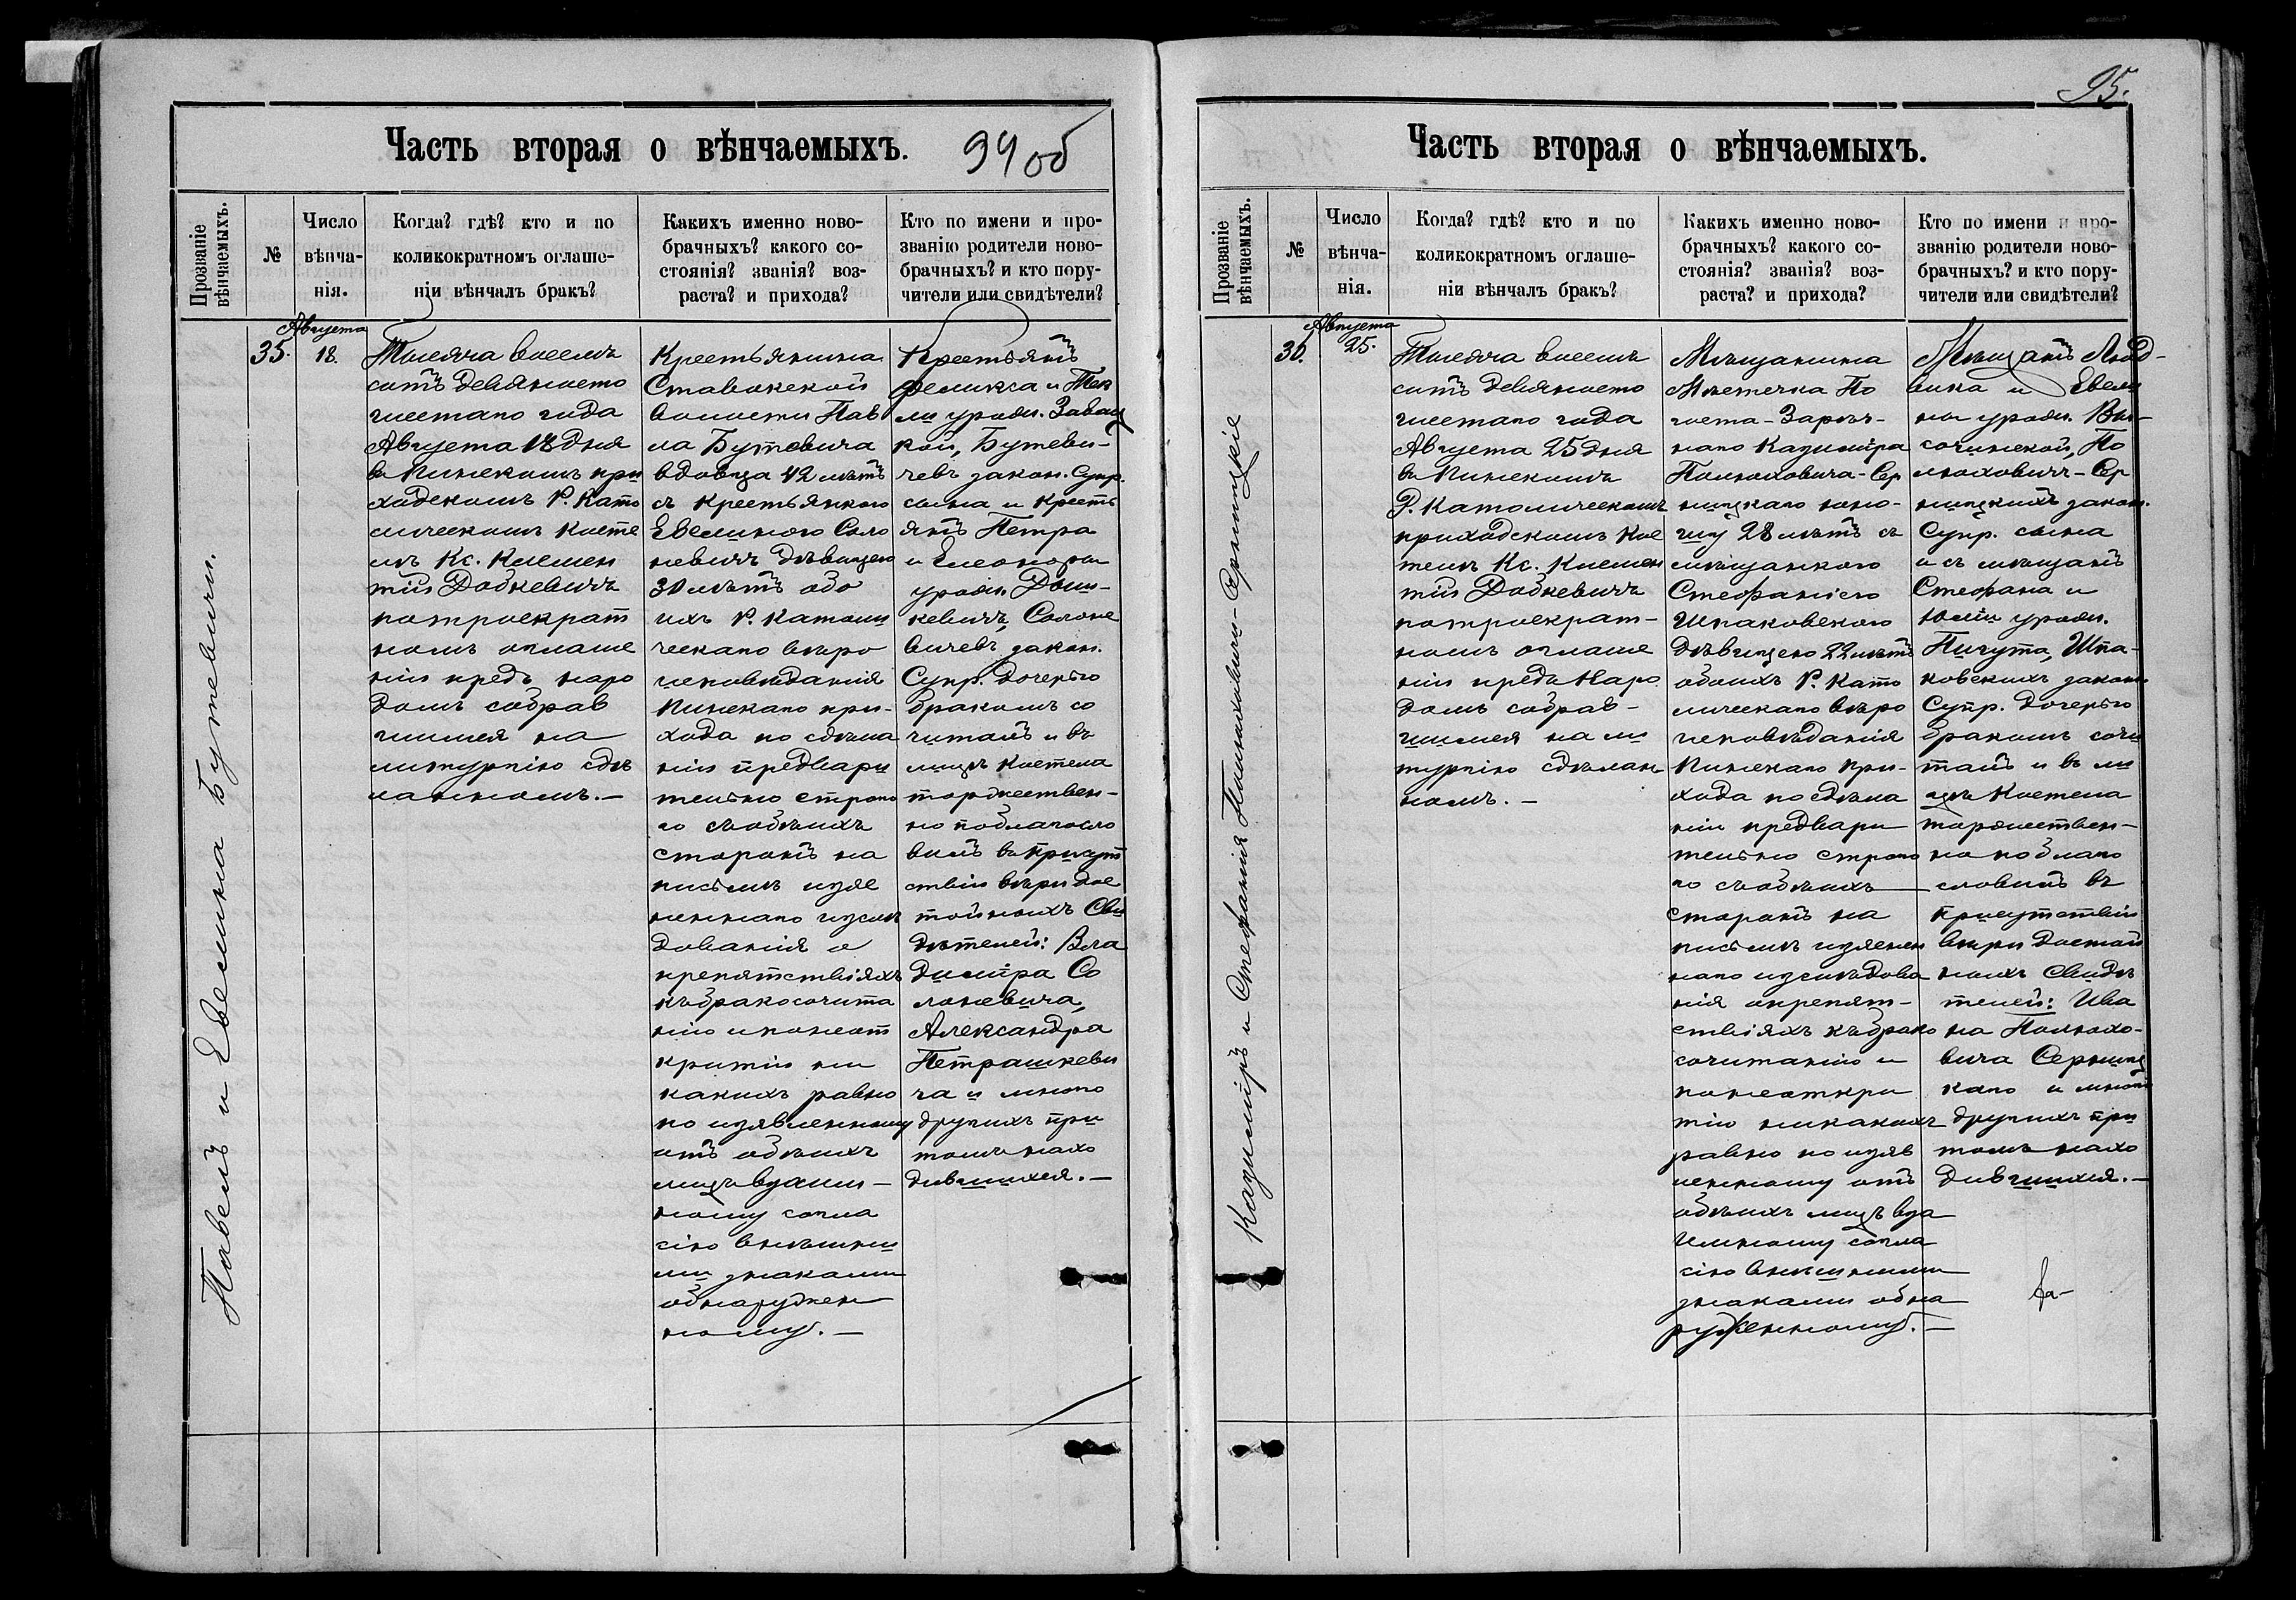 Часть вторая о вѣнчаемыхъ.
94 об
Прозваніе
вѣнчаемыхъ.
№
Число
вѣнча-
нія.
Когда? гдѣ? кто и по
коликократномъ оглаше-
ніи вѣнчалъ бракъ?
Какихъ именно ново-
брачныхъ? какого со-
стоянія? званія? воз-
раста? и прихода?
Кто по имени и про-
званію родители ново-
брачныхъ? и кто пору-
чители или свидѣтели?
Павелъ и Евелина Бутевичи.
35.
Августа
18.
Тысяча восемь
сотъ девяносто
шестаго года
Августа 18 дня
въ Пинскомъ при
ходскомъ Р. Като
лическомъ косте
лѣ Кс. Климен
тій Додкевичъ
потроекрат
номъ оглаше
ніи предъ наро
домъ собрав
шимся на
литургію сдѣ
ланномъ.—
Крестьянина
Ставокской
волости Пав
ла Бутевича
вдовца 42 лѣтъ
съ крестьянкою
Евелиною Соло
невичъ дѣвицею
30 лѣтъ обо
ихъ Р. Католи
ческаго вѣро
исповѣданія
Пинскаго при-
хода по сдѣла
ніи предвари
тельно строго
го съ обѣихъ
сторонъ на
письмѣ изъяс
неннаго изслѣ
дованія о
препятствіяхъ
къ бракосочета
нію и по неот
крытіи ни
какихъ равно
по изъявленному
отъ обѣихъ
лицъ взаим-
ному согла
сію внѣшни
ми знаками
обнаружен
ному.—
Крестьянъ
Феликса и Тек
ли урожд. Завац
кой, Бутеви-
чевъ закон. Супр.
сына и кресть
янъ Петра
и Елеоноры
урожд. Доми-
кевичъ, Солоне
вичевъ закон.
Супр. дочерью
бракомъ со
читалъ и въ
лицѣ костела
торжествен-
но поблагосло
вилъ въ присут
ствіи вѣри дос
тойныхъ Сви
дѣтелей: Вла
диміра Со
лоневича,
Александра
Петрашкеви
ча и много
другихъ при
томъ нахо
дившихся.—
95.
Часть вторая о вѣнчаемыхъ.
Прозваніе
вѣнчаемыхъ.
№
Число
вѣнча-
нія.
Когда? гдѣ? кто и по
коликократномъ оглаше-
ніи вѣнчалъ бракъ?
Какихъ именно ново-
брачныхъ? какого со-
стоянія? званія? воз-
раста? и прихода?
Кто по имени и про-
званію родители ново-
брачныхъ? и кто пору-
чители или свидѣтели?
Казиміръ и Стефанія
36.
Августа
25.
Тысяча восемь
сотъ девяносто
шестаго года
Августа 25 дня
въ Пинскомъ
Р. Католическомъ
приходскомъ Кос
телѣ Кс. Климен
тій Додкевичъ
потроекрат-
номъ оглаше
ніи предъ Наро
домъ собрав-
шимся на ли
тургію сдѣлан
номъ.—
Мѣщанина
Мѣстечка По
госта-Зарѣч-
наго Казиміра
Полюховича-Сер
ницкаго юно-
шу 28 лѣтъ съ
мѣщанкою
Стефаніею
Шпаковскою
дѣвицею 22 лѣтъ
обоихъ Р. Като
лическаго вѣро
исповѣданія
Пинскаго при-
хода по сдѣла
ніи предвари
тельно строго
го съ обѣихъ
сторонъ на
письмѣ изъяснен
наго изслѣдова
нія о препят-
ствіяхъ къ брако
сочитанію и
по неоткры
тію никакихъ
равно по изъяв
ленному отъ
обѣихъ лицъ вза
имному согла
сію внѣшними
знаками обна
руженному.—
Мѣщанъ Люд-
вика и Евели
ны урожд. Вы-
сочинской, По
люховичъ-Сер
ницкихъ закон.
Супр. сына
и съ мѣщанъ
Стефана и
Юліи урожд.
Пигута, Шпа-
ковскихъ закон
Супр. дочерью
бракомъ соче
талъ и въ ли
цѣ Костела
торжествен-
но поблаго
словилъ въ
присутствіи
вѣри достой
ныхъ Свидѣ
телей: Ива
на Полюхо-
вича Серниц
каго и много
другихъ при
томъ нахо
дившихся.—